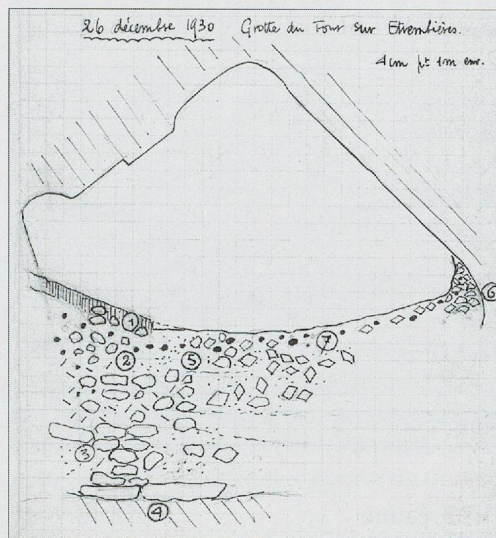 26 décembre 1930 Grotte du Four sur Etrembières.
4 cm pr 1m env.
1
6
7
2
5
3
4